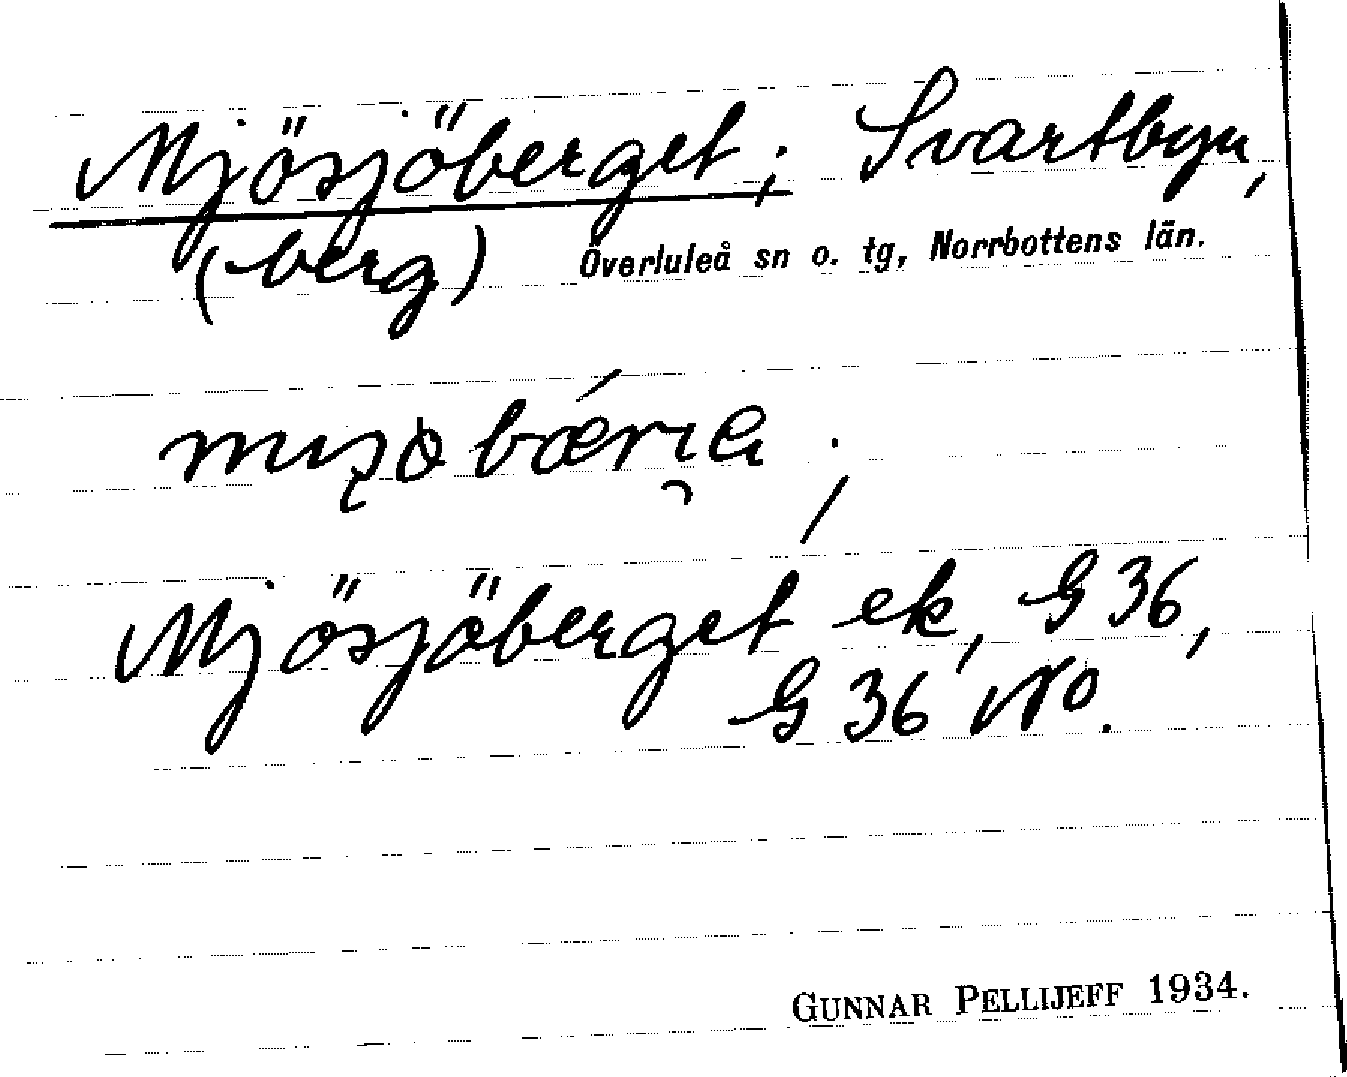 Mjösjöberget; Svartbyn,
(berg) Överluleå sn o. tg, Norrbottens län.
Mjösjöberget ek, G 36,
G 36 No.
GUNNAR PELLIJEFF 1934.